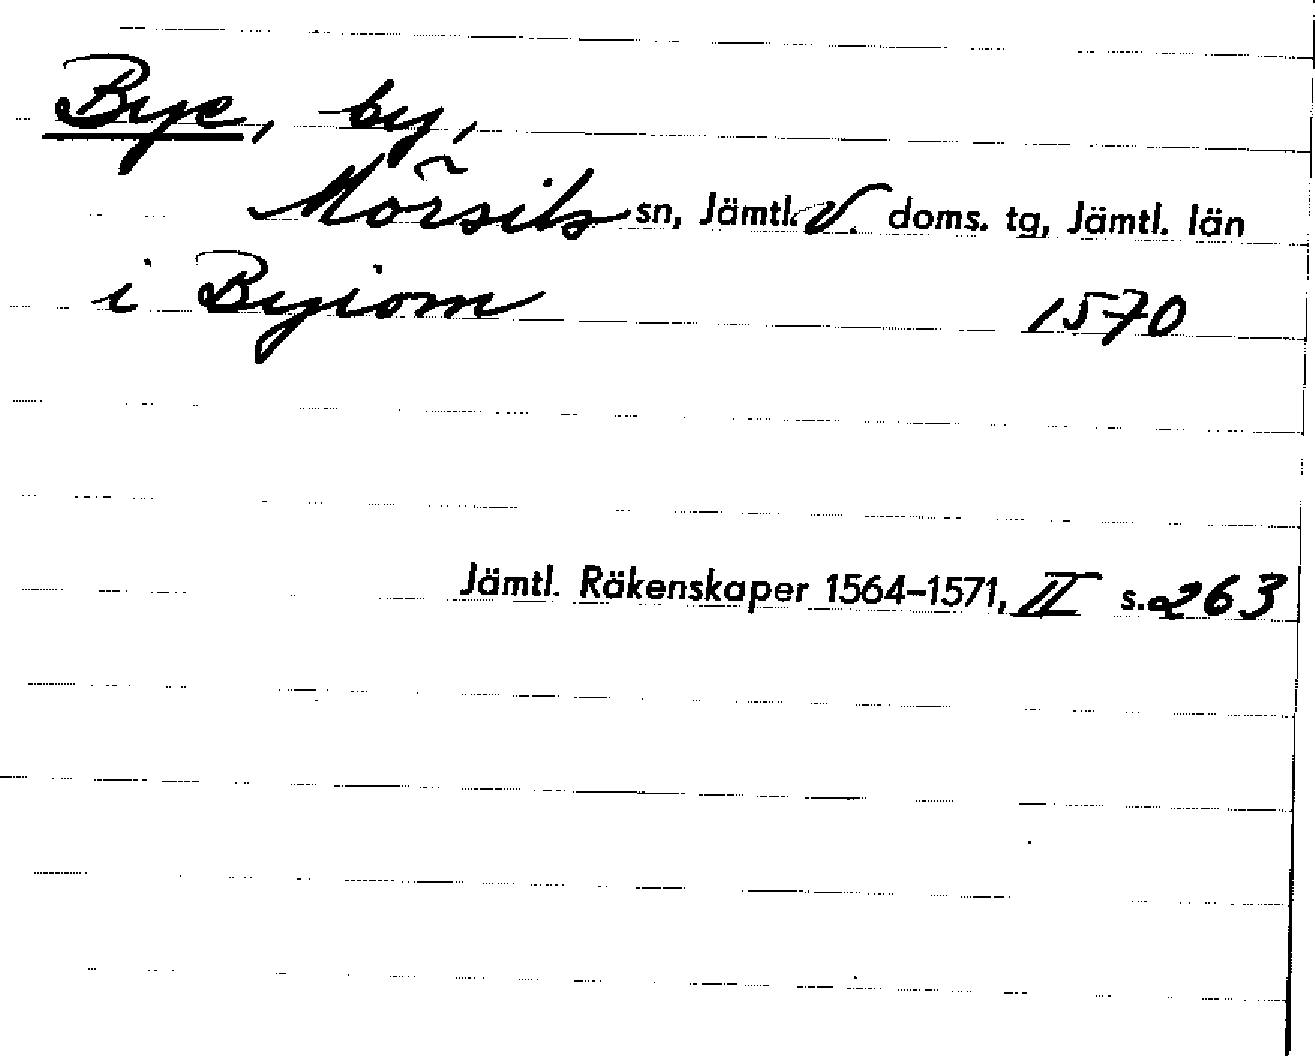 Bye, by,
Mörsils sn, Jämtl. V. doms. tg, Jämtl. län
i Byiom 1570
Jämtl. Räkenskaper 1564-1571, II s. 263